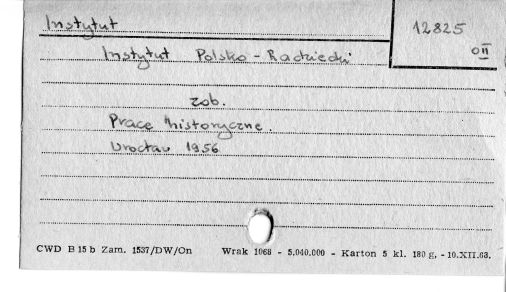 Instytut
12825
OII
Instytut Polsko-Radziecki
zob.
Prace historyczne.
Wrocław 1956
CWD B 15 b Zam. 1537/DW/On Wrak 1068 - 5.040.000 - Karton 5 kl. 180 g, - 10.XII.63.